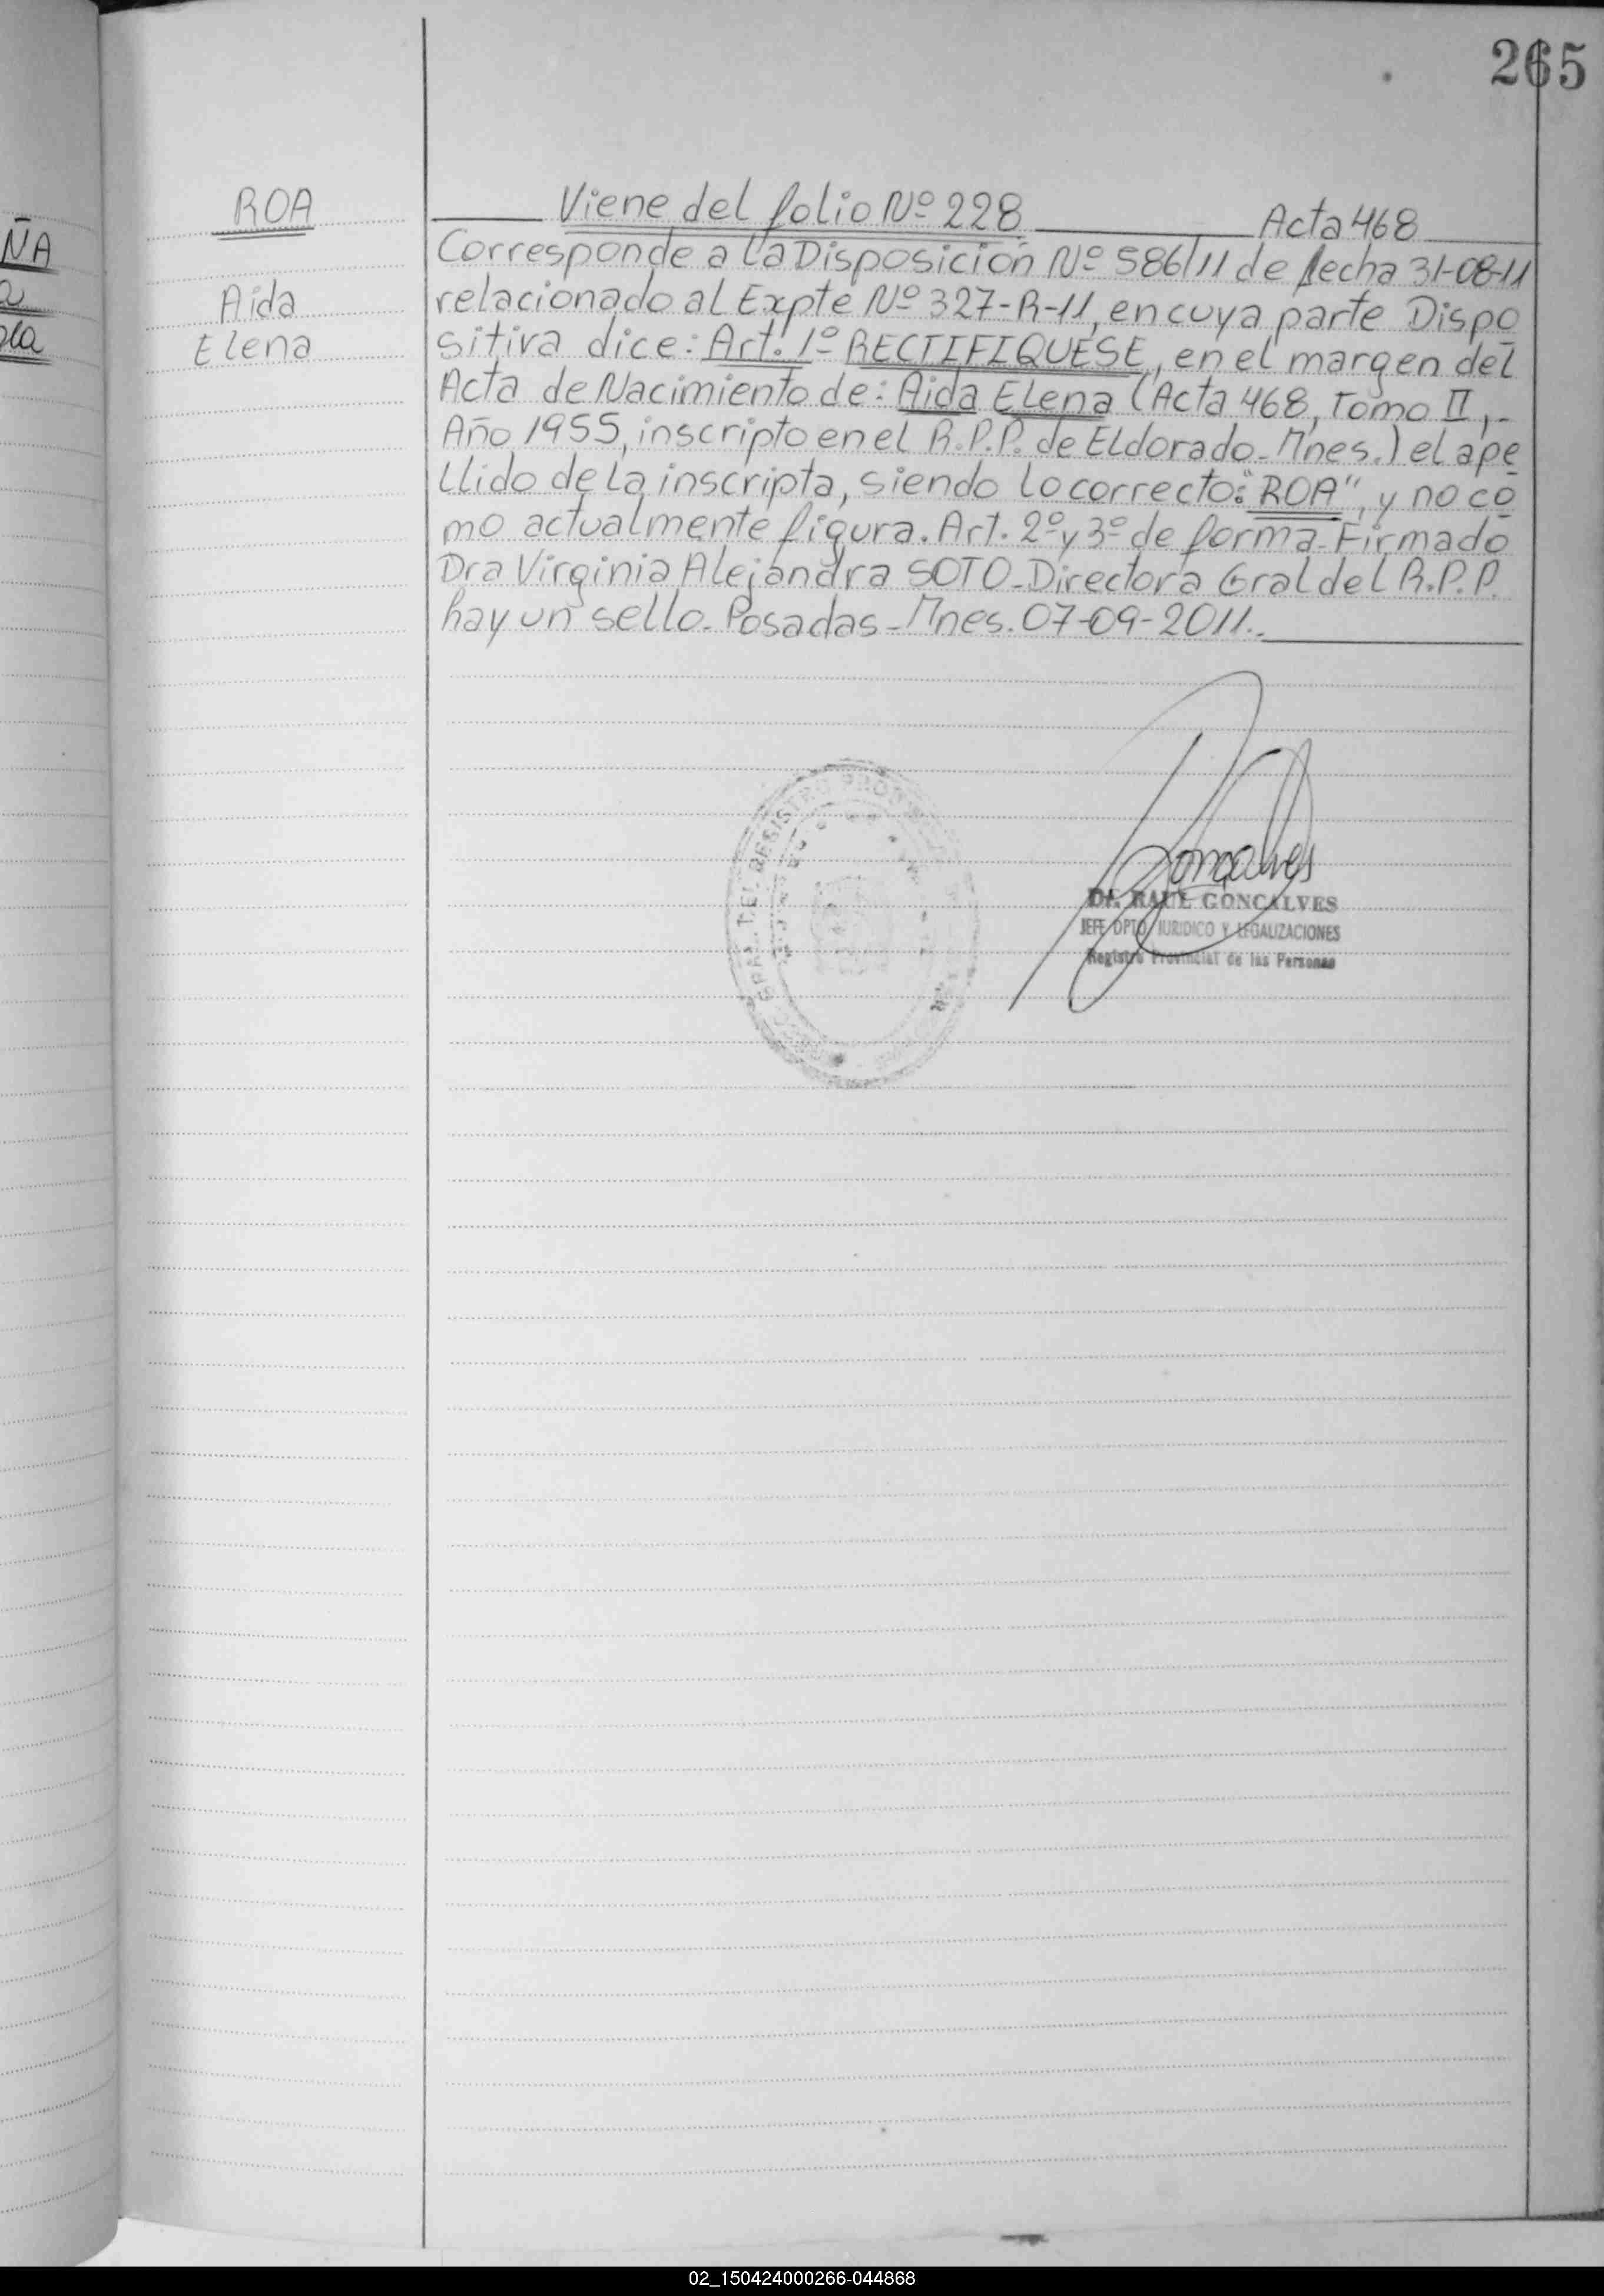 265
ÑA
ROA
Aida
Elena
Viene del folio Nº 228 Acta 468
Corresponde a la Disposición Nº 586/11 de fecha 31-08-11
relacionado al Expte Nº 327-R-11, en cuya parte Dispo
sitiva dice: Art. 1º RECTIFIQUESE, en el margen del
Acta de Nacimiento de: Aida Elena (Acta 468, Tomo II,-
Año 1955, inscripto en el R.P.P. de Eldorado - Mnes.) el ape
llido de la inscripta, siendo lo correcto: "ROA", y no co
mo actualmente figura. Art. 2º y 3º de forma - Firmado
Dra Virginia Alejandra SOTO - Directora Gral del R.P.P.
hay un sello - Posadas - Mnes. 07-09-2011.-
Gonçalves
Dr. RAUL GONCALVES
JEFE DPTO. JURIDICO Y LEGALIZACIONES
Registro Provincial de las Personas
02_150424000266-044868